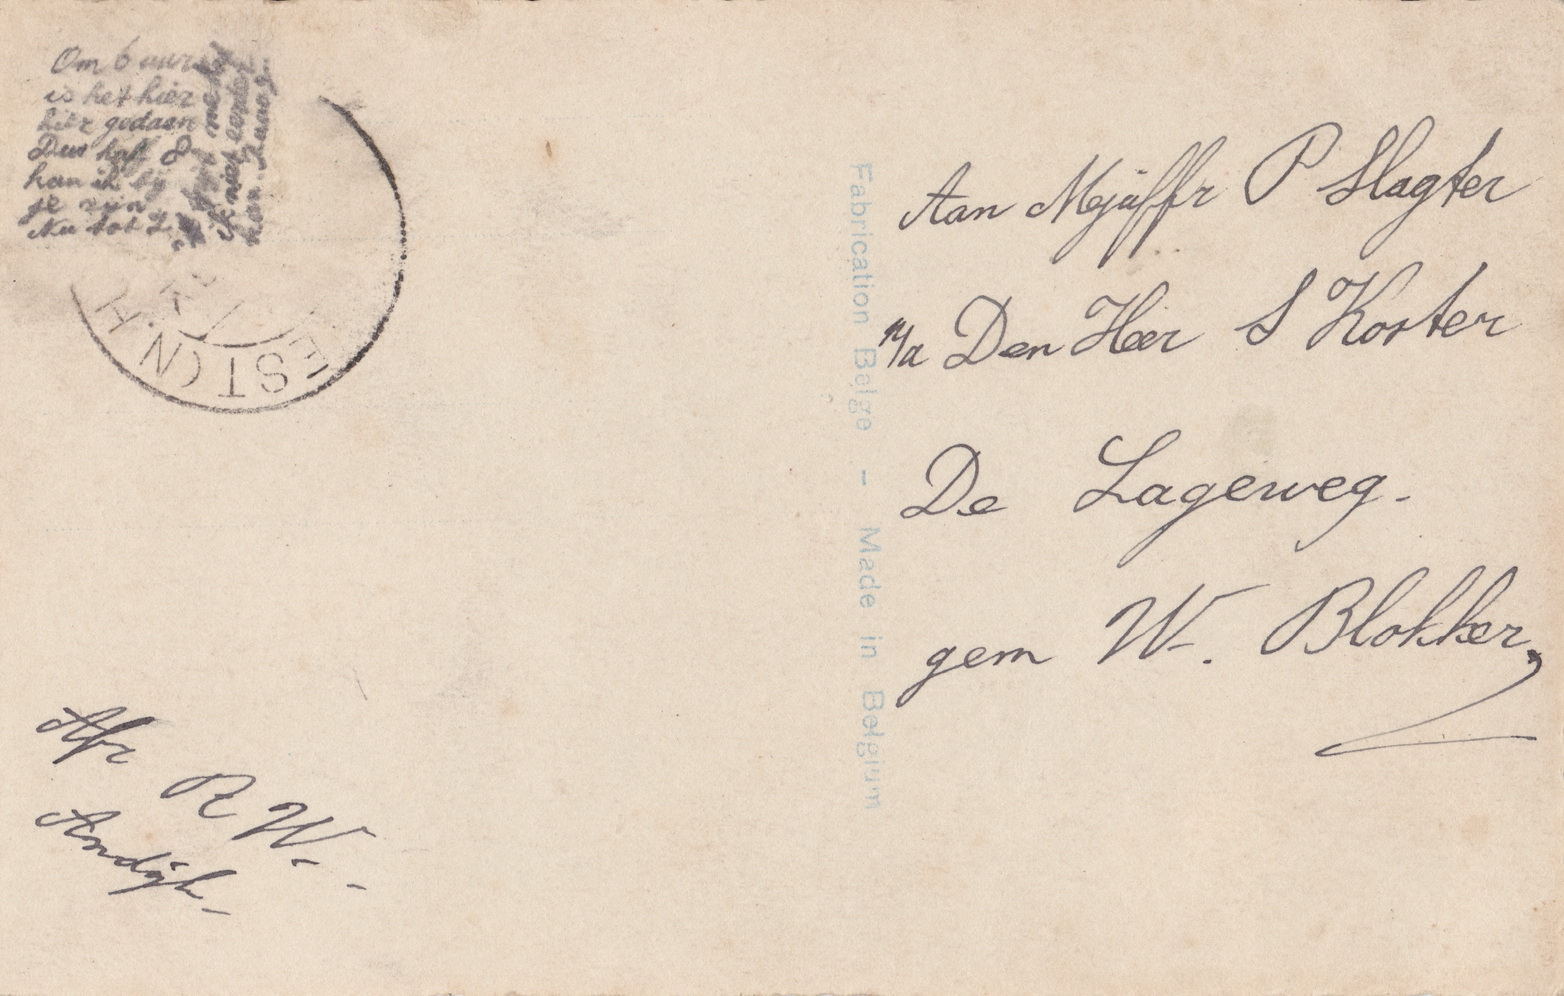 Om 6 uur
is het hier
hier gedaan
Dus half 8
kan ik bij
je zijn
Nu tot Z
ik niet eerder
kan.
H. K
ESTCN
Fabrication Belge – Made in Belgium
Aan Mejuffr P Slagter
p/a Den Heer S Koster
De Lageweg.
gem W. Blokker,
Afz R W.
Andijk.